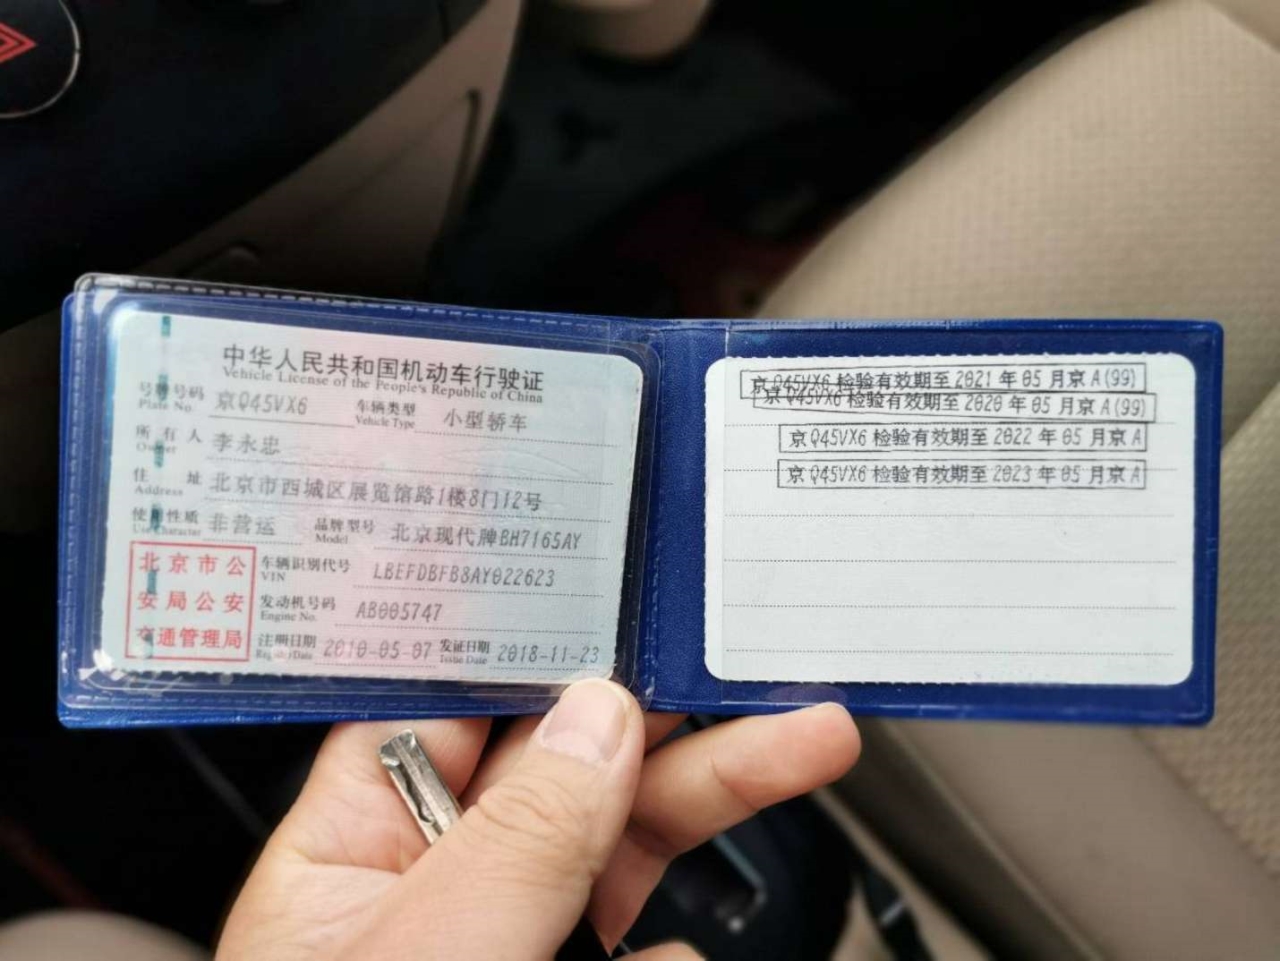 中华人民共和国机动车行驶证
Vehicle License of the People's Republic of China
号牌号码 京Q45VX6 车辆类型 小型轿车
Plate No. Vehicle Type
所有人 李永忠
Owner
住址 北京市西城区展览馆路1楼8门12号
Address
使用性质 非营运 品牌型号 北京现代牌BH7165AY
Use Character Model
北京市公安局公安交通管理局
车辆识别代号 LBEFDBFB8AY022623
VIN
发动机号码 AB005747
Engine No.
注册日期 2010-05-07 发证日期 2018-11-23
Register Date Issue Date
京Q45VX6 检验有效期至 2021 年 05 月京 A(99)
京Q45VX6 检验有效期至 2020 年 05 月京 A(99)
京Q45VX6 检验有效期至 2022 年 05 月京 A
京Q45VX6 检验有效期至 2023 年 05 月京 A